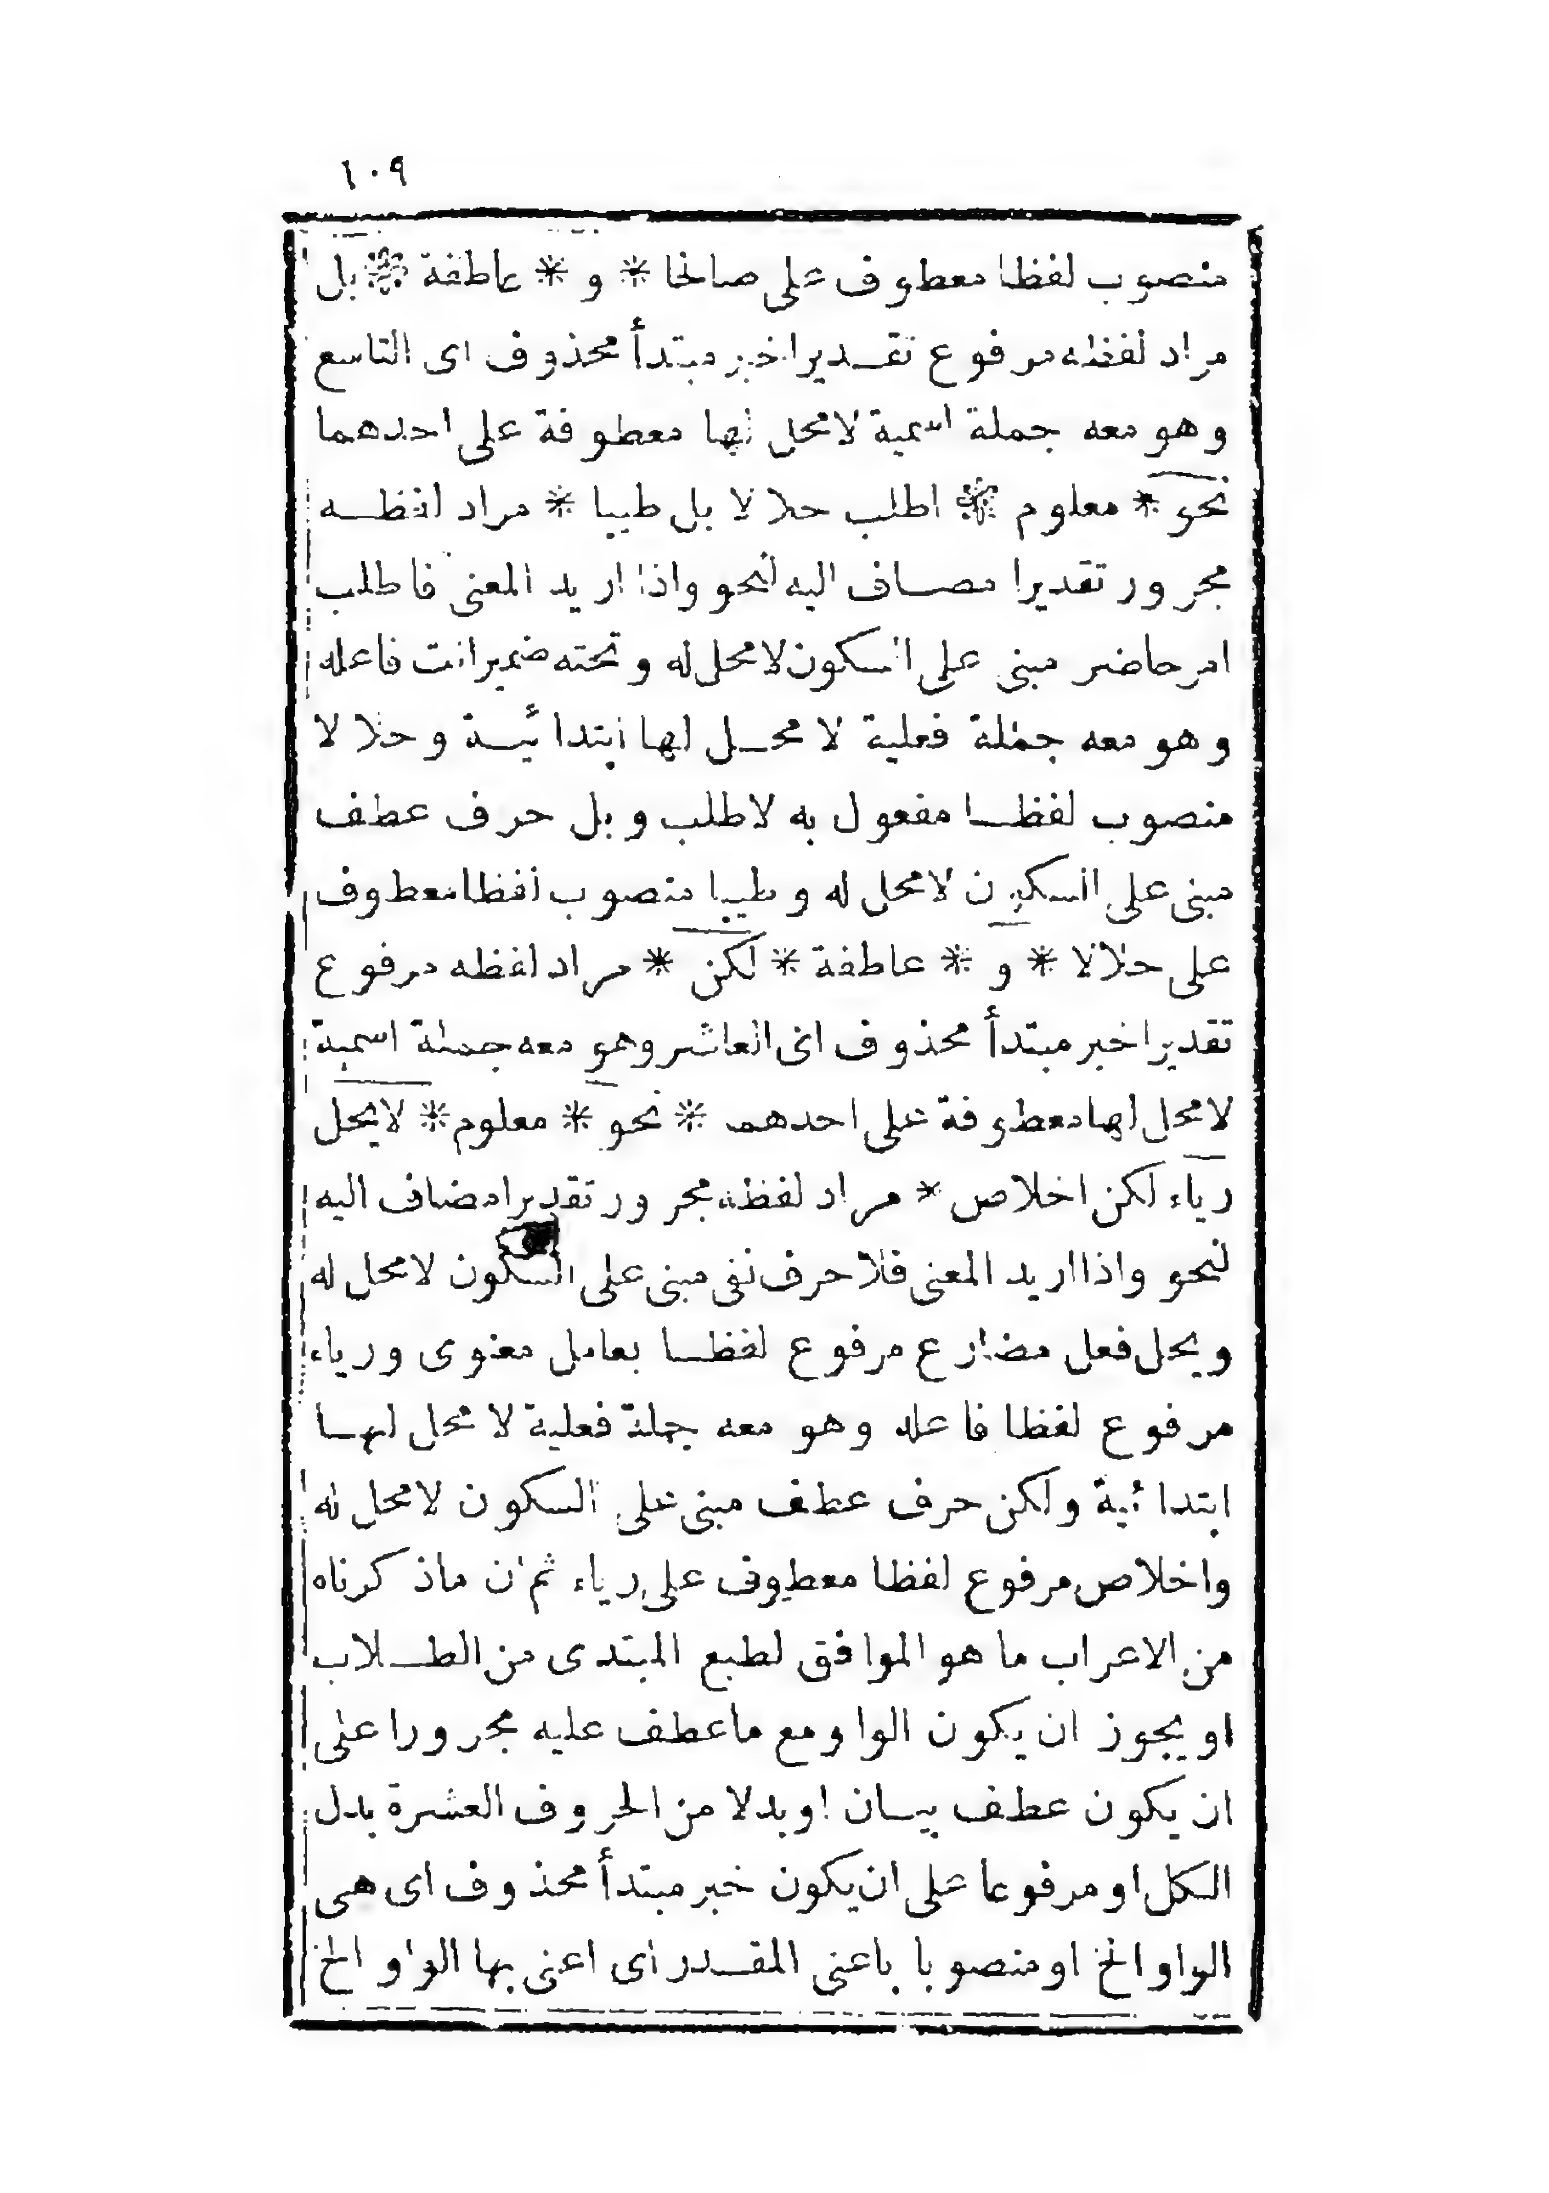 ١٠٩
منصوب لفظا معطوف على صالحا * و * عاطفة * بل
مراد لفظه مرفوع تقديرا خبر مبتدأ محذوف اى التاسع
وهو معه جملة اسمية لا محل لها معطوفة على احدهما
نحو * معلوم * اطلب حلالا بل طيبا * مراد لفظه
مجرور تقديرا مضاف اليه لنحو واذا اريد المعنى فاطلب
امر حاضر مبنى على السكون لا محل له وتحته ضمير انت فاعله
وهو معه جملة فعلية لا محل لها ابتدائية وحلالا
منصوب لفظا مفعول به لاطلب وبل حرف عطف
مبنى على السكون لا محل له وطيبا منصوب لفظا معطوف
على حلالا * و * عاطفة * لكن * مراد لفظه مرفوع
تقديرا خبر مبتدأ محذوف اى العاشر وهو معه جملة اسمية
لا محل لها معطوفة على احدهما * نحو * معلوم * لا يحل
رياء لكن اخلاص * مراد لفظه مجرور تقديرا مضاف اليه
لنحو واذا اريد المعنى فلا حرف نفى مبنى على السكون لا محل له
ويحل فعل مضارع مرفوع لفظا بعامل معنوى ورياء
مرفوع لفظا فاعله وهو معه جملة فعلية لا محل لها
ابتدائية ولكن حرف عطف مبنى على السكون لا محل له
واخلاص مرفوع لفظا معطوف على رياء ثم ان ماذكرناه
من الاعراب ما هو الموافق لطبع المبتدى من الطلاب
او يجوز ان يكون الواو مع ما عطف عليه مجرورا على
ان يكون عطف بيان او بدلا من الحروف العشرة بدل
الكل او مرفوعا على ان يكون خبر مبتدأ محذوف اى هى
الواو الخ او منصوبا باعنى المقدر اى اعنى بها الواو الخ